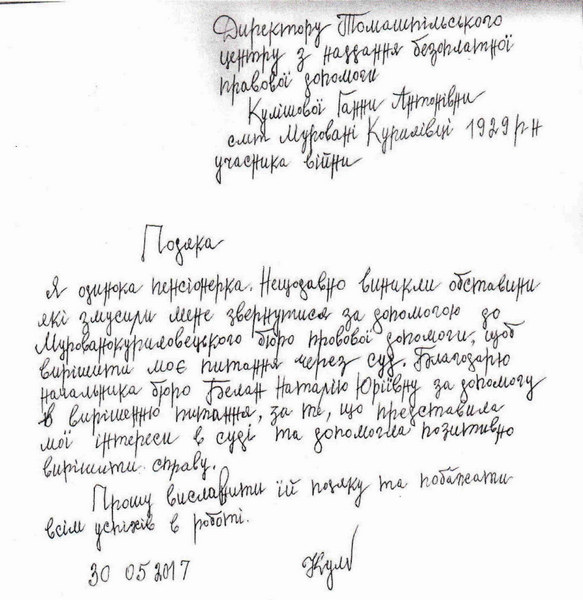 Директору Томашпільського
центру з надання безоплатної
правової допомоги
Кулішової Ганни Антонівни
смт Муровані Курилівці 1929 р-н
учасника війни
Подяка
Я одинока пенсіонерка. Нещодавно виникли обставини
які змусили мене звернутися за допомогою до
Мурованокуриловецького бюро правової допомоги, щоб
вирішити моє питання через суд. Благодарю
начальника бюро Белан Наталію Юріївну за допомогу
в вирішенню питання, за те, що представила
мої інтереси в суді та допомогла позитивно
вирішити справу.
Прошу висловити їй подяку та побажати
всім успіхів в роботі.
30 05 2017